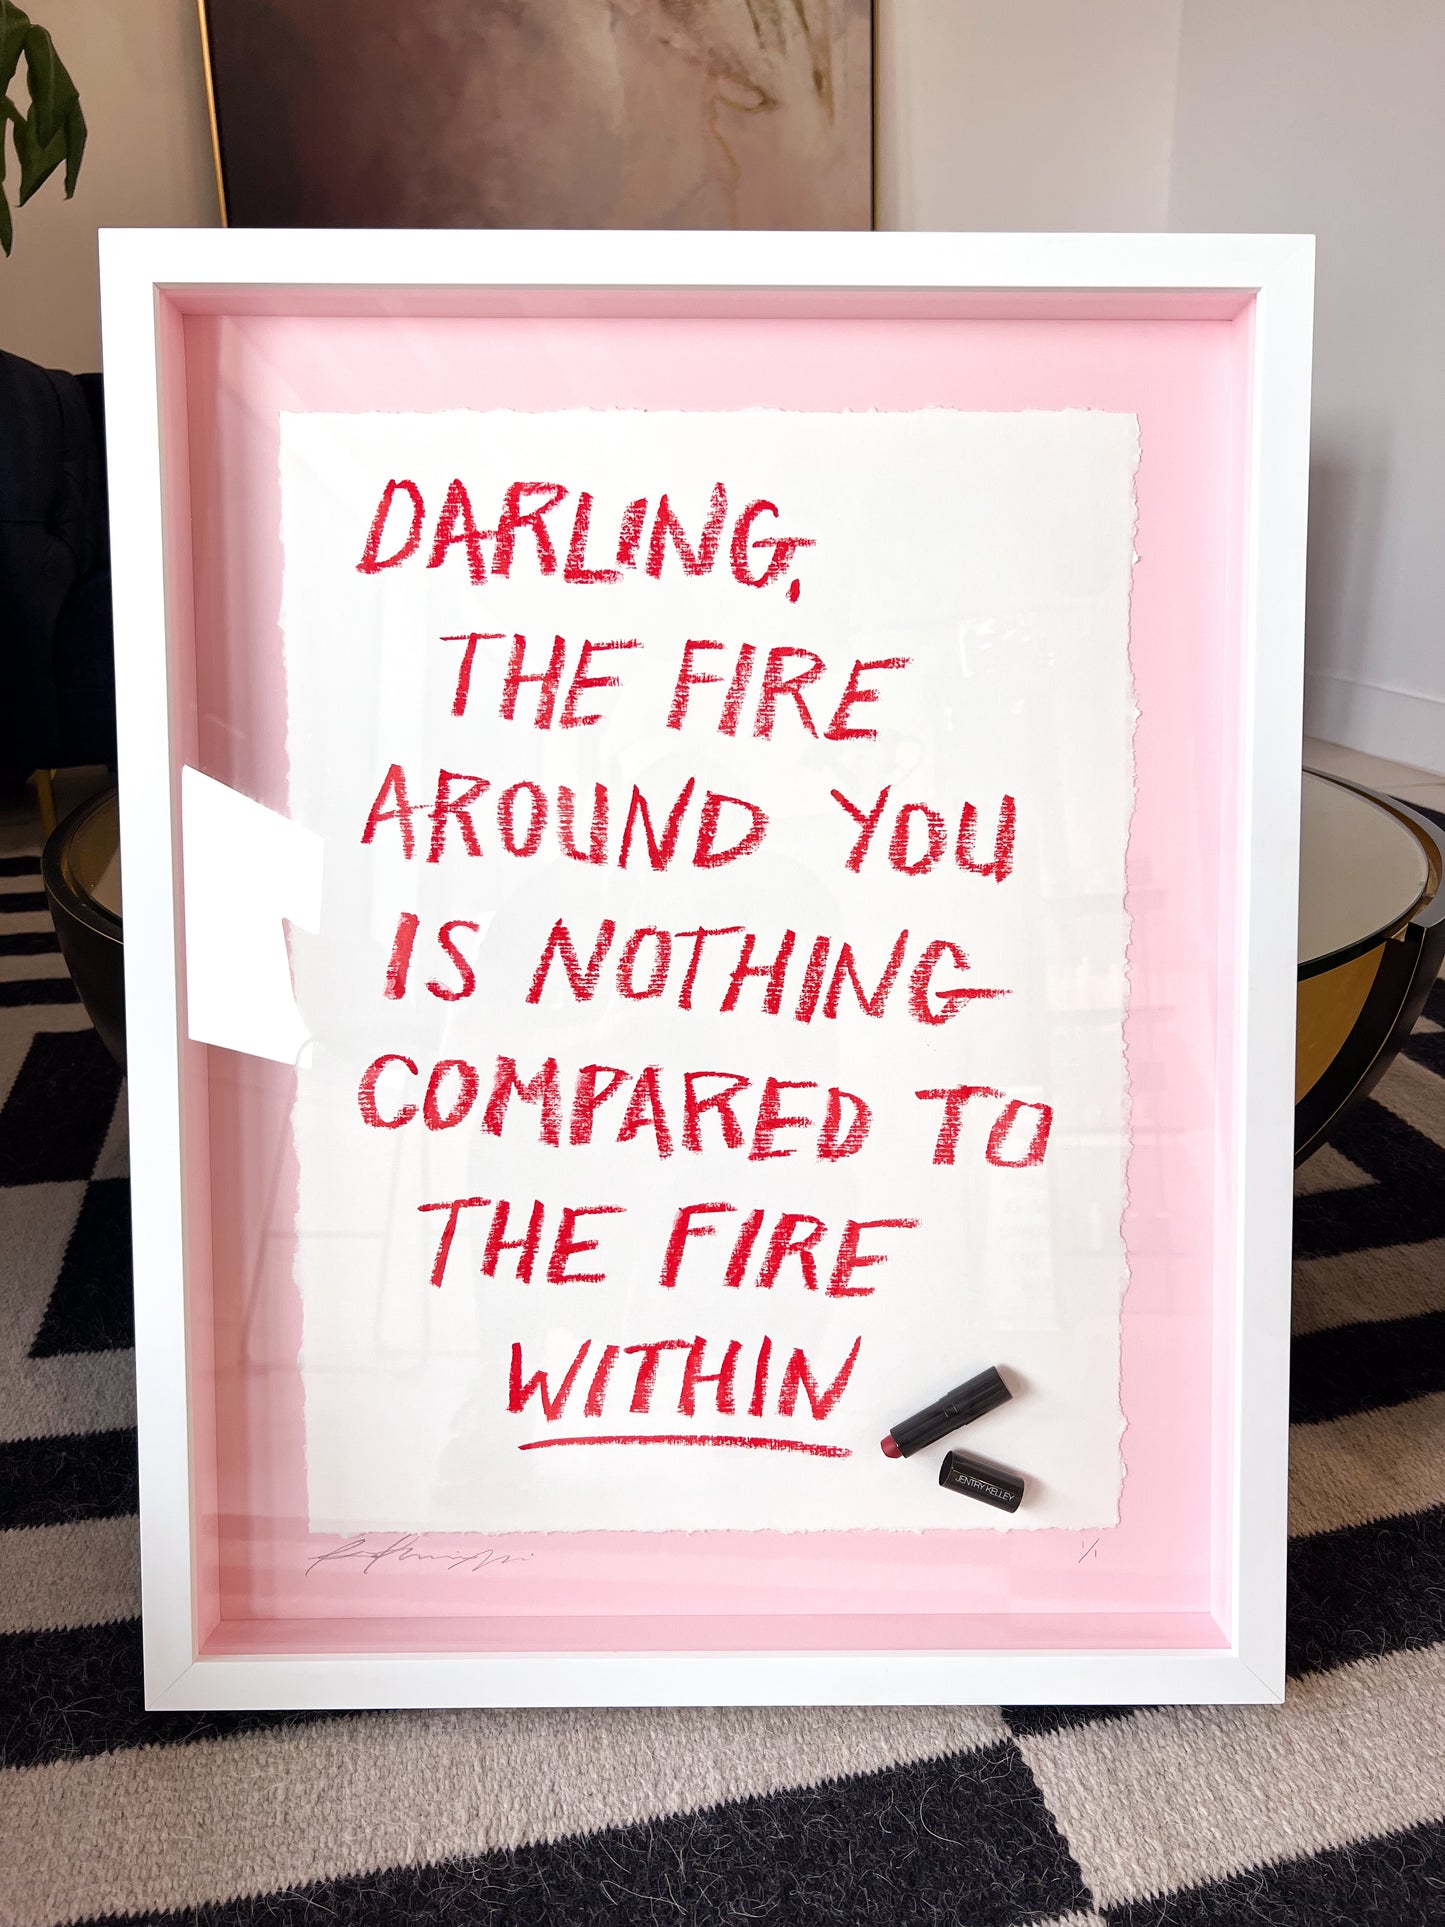 DARLING,
THE FIRE
AROUND YOU
IS NOTHING
COMPARED TO
THE FIRE
WITHIN
JENTRY KELLEY
1/1